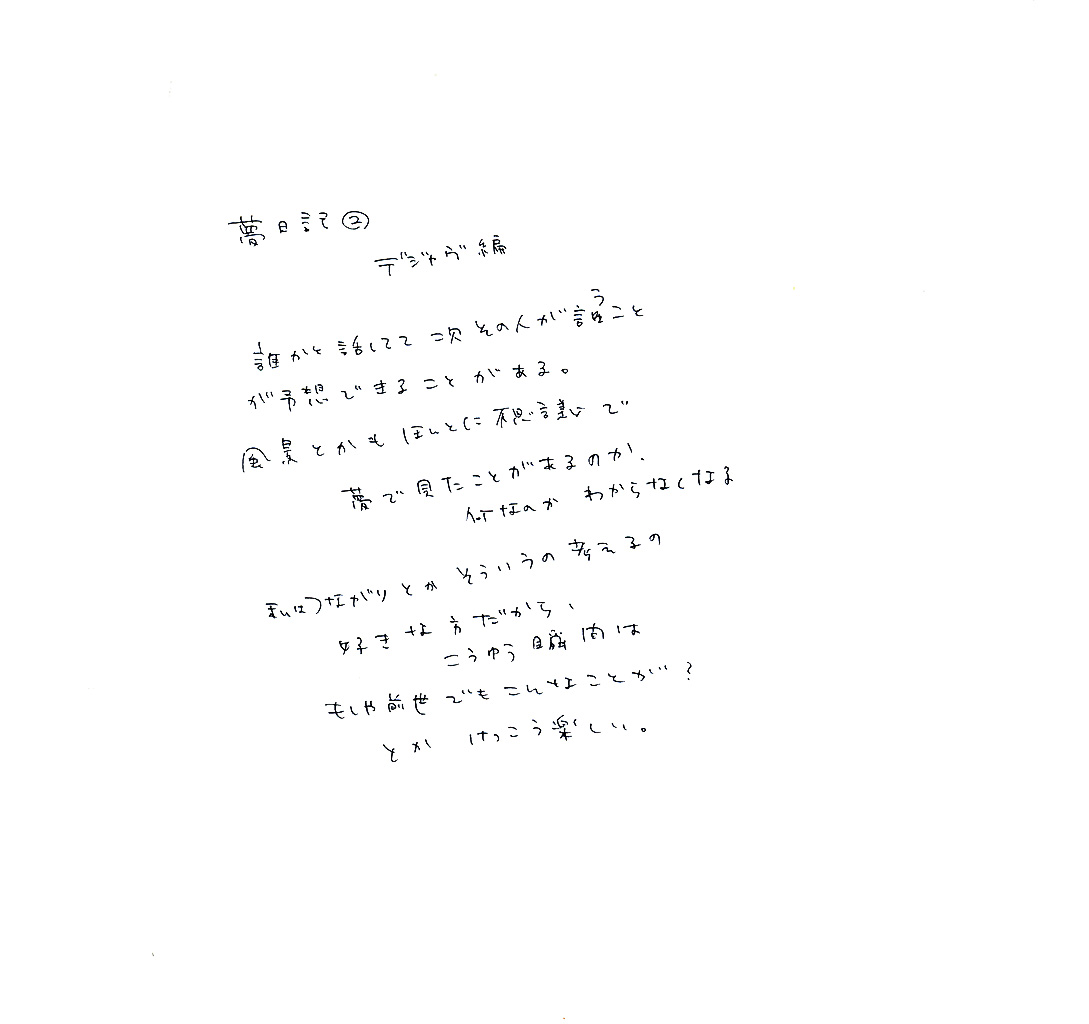 夢日記②
デジャヴ編
誰かと話してて 次その人が話うこと
が予想できることがある。
風景とかもほんとに不思議で
夢で見たことがあるのか、
何なのか わからなくなる
私はつながりとか そういうの 考えるの
好きな方だから、
こうゆう 脳内は
もしや前世でもこんなことが?
とか けっこう楽しい。